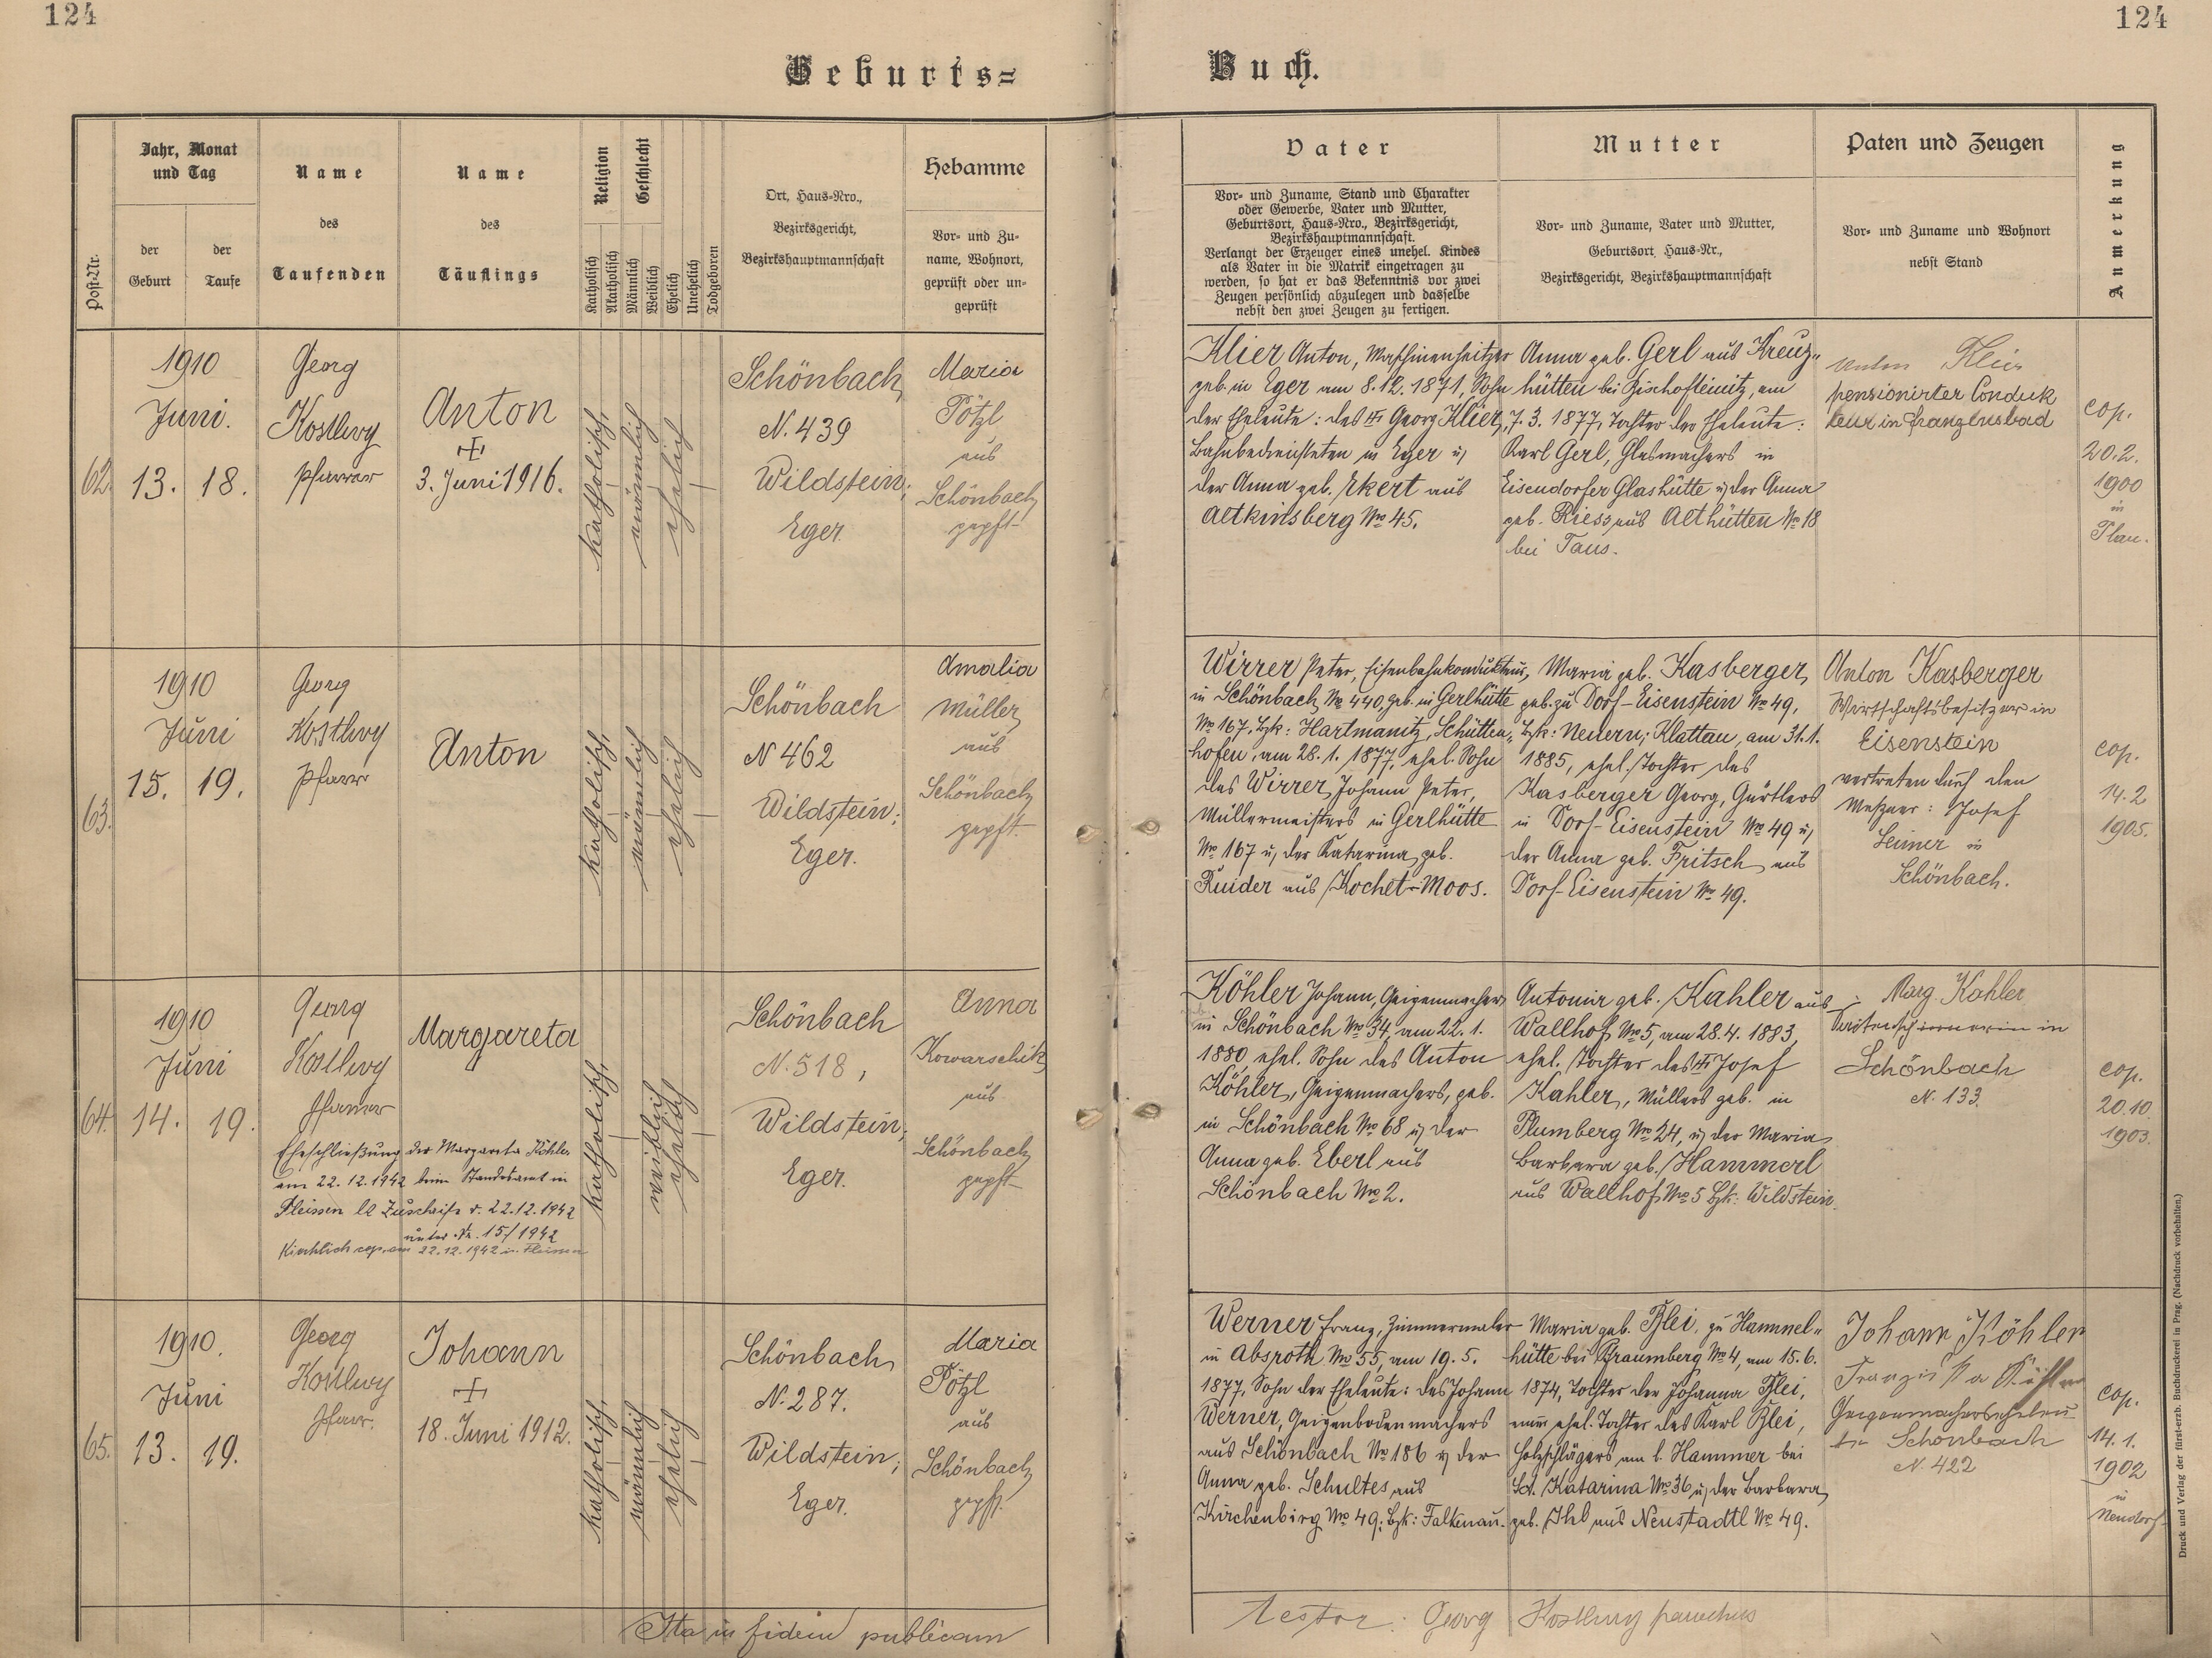 124
124
Geburts=
Buch.
Post-Nr.
Jahr, Monat
und Tag
der
Geburt
der
Taufe
Name
des
Taufenden
Name
des
Täuflings
Religion
Katholisch
Akatholisch
Geschlecht
Männlich
Weiblich
Ehelich
Unehelich
Todgeboren
Ort, Haus-Nro.,
Bezirksgericht,
Bezirkshauptmannschaft
Hebamme
Vor- und Zu-
name, Wohnort,
geprüft oder un-
geprüft
Vater
Vor- und Zuname, Stand und Charakter
oder Gewerbe, Vater und Mutter,
Geburtsort, Haus-Nro., Bezirksgericht,
Bezirkshauptmannschaft.
Verlangt der Erzeuger eines unehel. Kindes
als Vater in die Matrik eingetragen zu
werden, so hat er das Bekenntnis vor zwei
Zeugen persönlich abzulegen und dasselbe
nebst den zwei Zeugen zu fertigen.
Mutter
Vor- und Zuname, Vater und Mutter,
Geburtsort, Haus-Nr.,
Bezirksgericht, Bezirkshauptmannschaft
Paten und Zeugen
Vor- und Zuname und Wohnort
nebst Stand
Anmerkung
62
1910
Juni.
13. 18.
Georg
Kostlivy
Pfarrer
Anton
+
3. Juni 1916.
katholisch
männlich
ehelich
Schönbach
N. 439
Wildstein;
Eger.
Maria
Pötzl
aus
Schönbach
gepft
Klier Anton, Maschinenheitzer
geb. in Eger am 8.12.1871, Sohn
der Eheleute: des + Georg Klier,
Bahnbediensteten in Eger u,
der Anna geb. Ekert aus
Altkinsberg No 45.
Anna geb. Gerl aus Kreuz-
hütten bei Bischofteinitz, am
7.3.1877, Tochter der Eheleute:
Karl Gerl, Glasmachers in
Eisendorfer Glashütte u, der Anna
geb. Riess aus Althütten No 18
bei Taus.
Anton
pensionirter Conduk
teur in Franzensbad
cop.
20.2.
1900
in
Plan.
63.
1910
Juni
15. 19.
Georg
Kostlivy
Pfarrer
Anton
katholisch
männlich
ehelich
Schönbach
N 462
Wildstein;
Eger.
Amalia
Müller
aus
Schönbach
gepft.
Wirrer Peter, Eisenbahnkondukteur,
in Schönbach No 440, geb. in Gerlhütte
No 167, Bzk: Hartmanitz, Schütten-
hofen, am 28.1.1877, ehel. Sohn
des Wirrer Johann Peter,
Müllermeisters in Gerlhütte
No 167 u, der Katarina geb.
Ruider aus Kochet-Moos.
Maria geb. Kasberger,
geb. zu Dorf-Eisenstein No 49,
Bzk: Neuern; Klattau, am 31.1.
1885, ehel. Tochter des
Kasberger Georg, Gürtlers
in Dorf-Eisenstein No 49 u,
der Anna geb. Fritsch aus
Dorf-Eisenstein No 49.
Anton Kasberger
Wirtschaftsbesitzer in
Eisenstein
vertreten durch den
Meßner: Josef
Leimer in
Schönbach.
cop.
14.2
1905.
64.
1910
Juni
14. 19.
Georg
Kostlivy
Pfarrer
Margareta
Eheschließung der Margareta Köhler
am 22.12.1942 beim Standesamt in
Fleissen lt Zuschrift v. 22.12.1942
unter Nr. 15/1942
Kirchlich cop. am 22.12.1942 in Fleissen
katholisch
weiblich
ehelich
Schönbach
N. 518,
Wildstein;
Eger.
Anna
Kowarschik
aus
Schönbach
gepft
Köhler Johann, Geigenmacher
in Schönbach No 34, am 22.1.
1880, ehel. Sohn des Anton
Köhler, Geigenmachers, geb.
in Schönbach No 68 u, der
Anna geb. Eberl aus
Schönbach No 2.
Antonia geb. Kahler aus
Wallhof No 5, am 28.4.1883,
ehel. Tochter des + Josef
Kahler, Müllers geb. in
Plumberg No 24, u, der Maria
Barbara geb. Hammerl
aus Wallhof No 5 Bzk: Wildstein.
Marg. Kahler
Saitenspinnerin in
Schönbach
N. 133.
cop.
20.10.
1903.
65.
1910.
Juni
13. 19.
Georg
Kostlivy
Pfarr.
Johann
+
18. Juni 1912.
katholisch
männlich
ehelich
Schönbach
N. 287.
Wildstein;
Eger.
Maria
Pötzl
aus
Schönbach
gepft.
Werner Franz, Zimmermaler
in Absroth No 55, am 19.5.
1877, Sohn der Eheleute: des Johann
Werner, Geigenbodenmachers
aus Schönbach No 186 u, der
Anna geb. Schultes aus
Kirchenbirg No 49; Bzk: Falkenau.
Maria geb. Blei, zu Hammel-
hütte bei Graumberg No 4, am 15.6.
1874, Tochter der Johanna Blei,
ehel. Tochter des Karl Blei,
Holzschlägers am l. Hammer bei
Sd. Katarina No 36 u, der Barbara
geb. Ihl aus Neustadtl No 49.
Johann Köhler
Franziska Köhler
in Schönbach
N. 422
cop.
14.1.
1902
in
Neudorf
Ita in fidem publicam
testor: Georg Kostlivy parochus
Druck und Verlag der fürst-erzb. Buchdruckerei in Prag. (Nachdruck vorbehalten.)